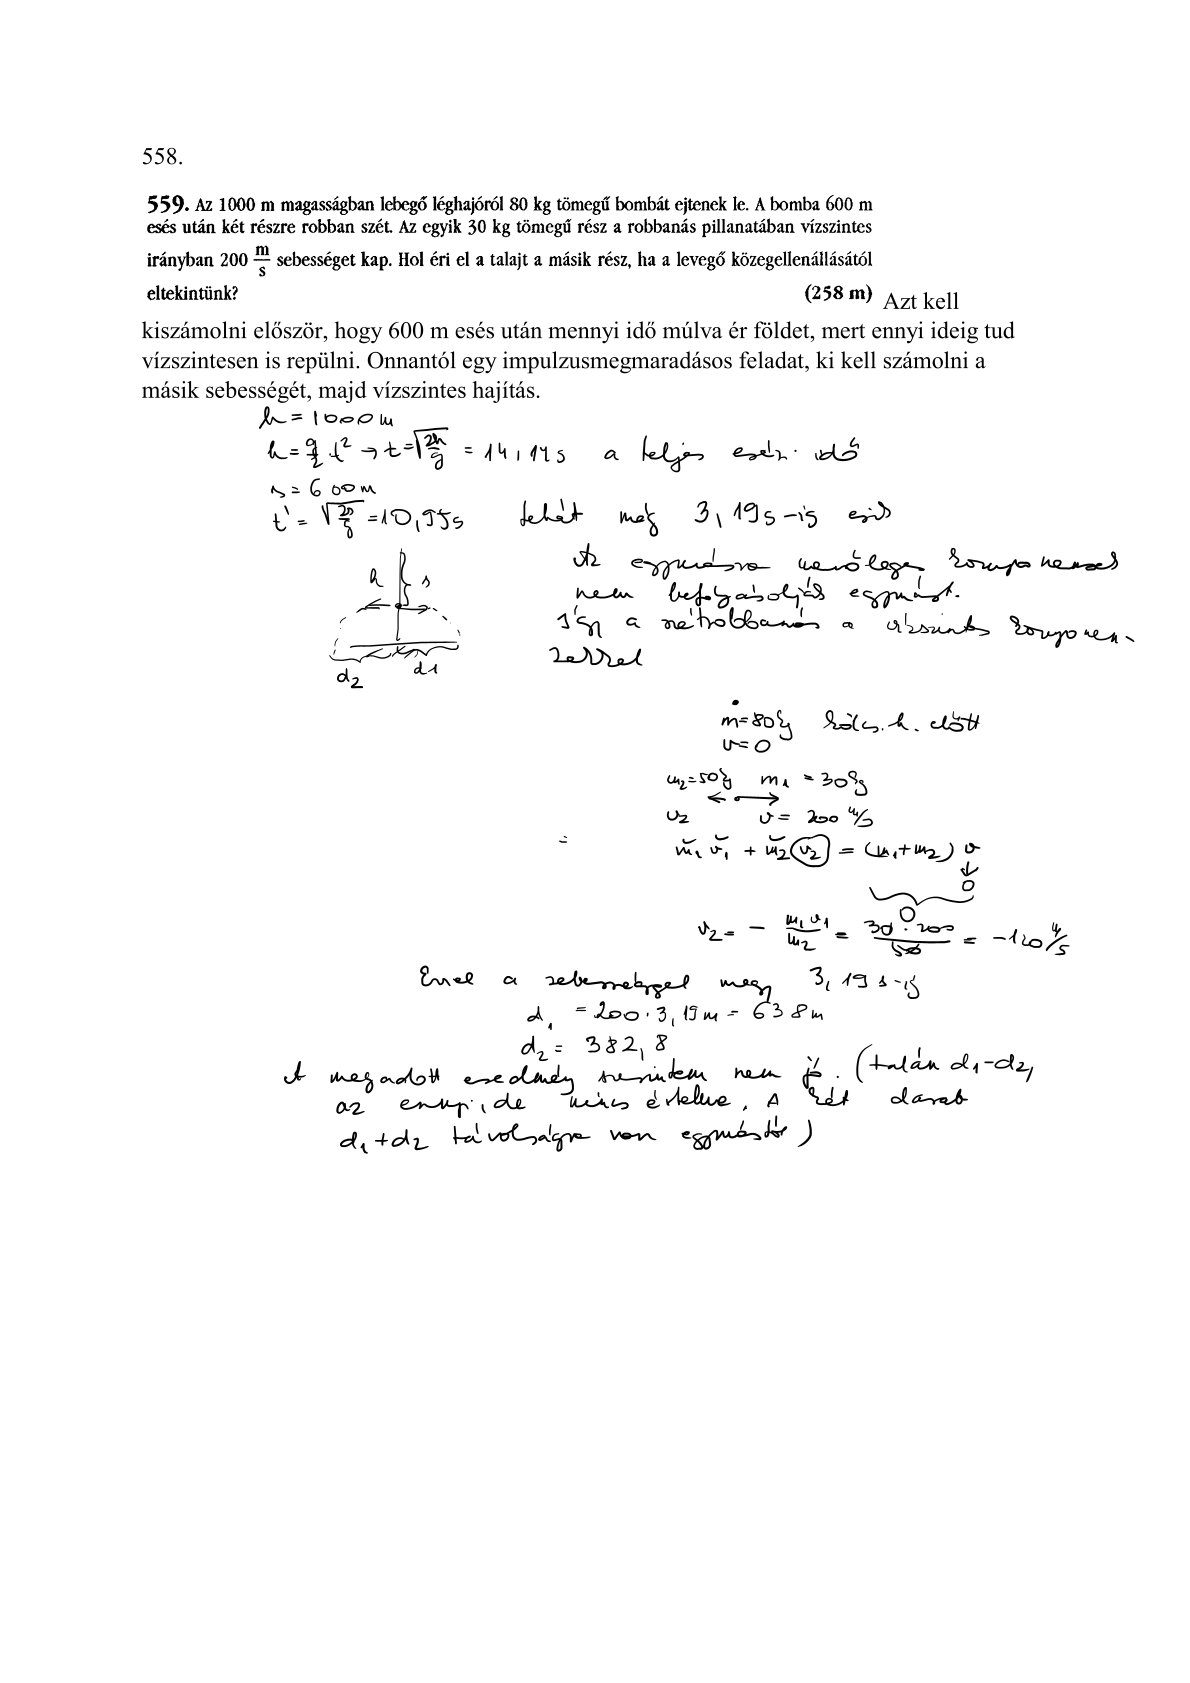 558.
559. Az 1000 m magasságban lebegő léghajóról 80 kg tömegű bombát ejtenek le. A bomba 600 m
esés után két részre robban szét. Az egyik 30 kg tömegű rész a robbanás pillanatában vízszintes
irányban 200 m/s sebességet kap. Hol éri el a talajt a másik rész, ha a levegő közegellenállásától
eltekintünk? (258 m) Azt kell
kiszámolni először, hogy 600 m esés után mennyi idő múlva ér földet, mert ennyi ideig tud
vízszintesen is repülni. Onnantól egy impulzusmegmaradásos feladat, ki kell számolni a
másik sebességét, majd vízszintes hajítás.
h = 1000 m
h = g/2 t² → t = √(2h/g) = 14,14 s a teljes esési idő
s = 600 m
t' = √(2s/g) = 10,95 s tehát még 3,19 s-ig esik
Az egymásra merőleges komponensek
h s
nem befolyásolják egymást.
Így a szétrobbanás a vízszintes komponen-
d2 d1
m = 80 kg kölcs. h. előtt
v = 0
m2 = 50 kg m1 = 30 kg
v2 v = 200 m/s
= m1 v1 + m2 v2 = (m1 + m2) v
0
0
v2 = - m1 v1 / m2 = 30 · 200 / 50 = -120 m/s
Ezzel a sebességgel megy 3,19 s-ig
d1 = 200 · 3,19 m = 638 m
d2 = 382,8
A megadott eredmény szerintem nem jó. (talán d1 - d2,
az ennyi, de nincs értelme. A két darab
d1 + d2 távolságra van egymástól)